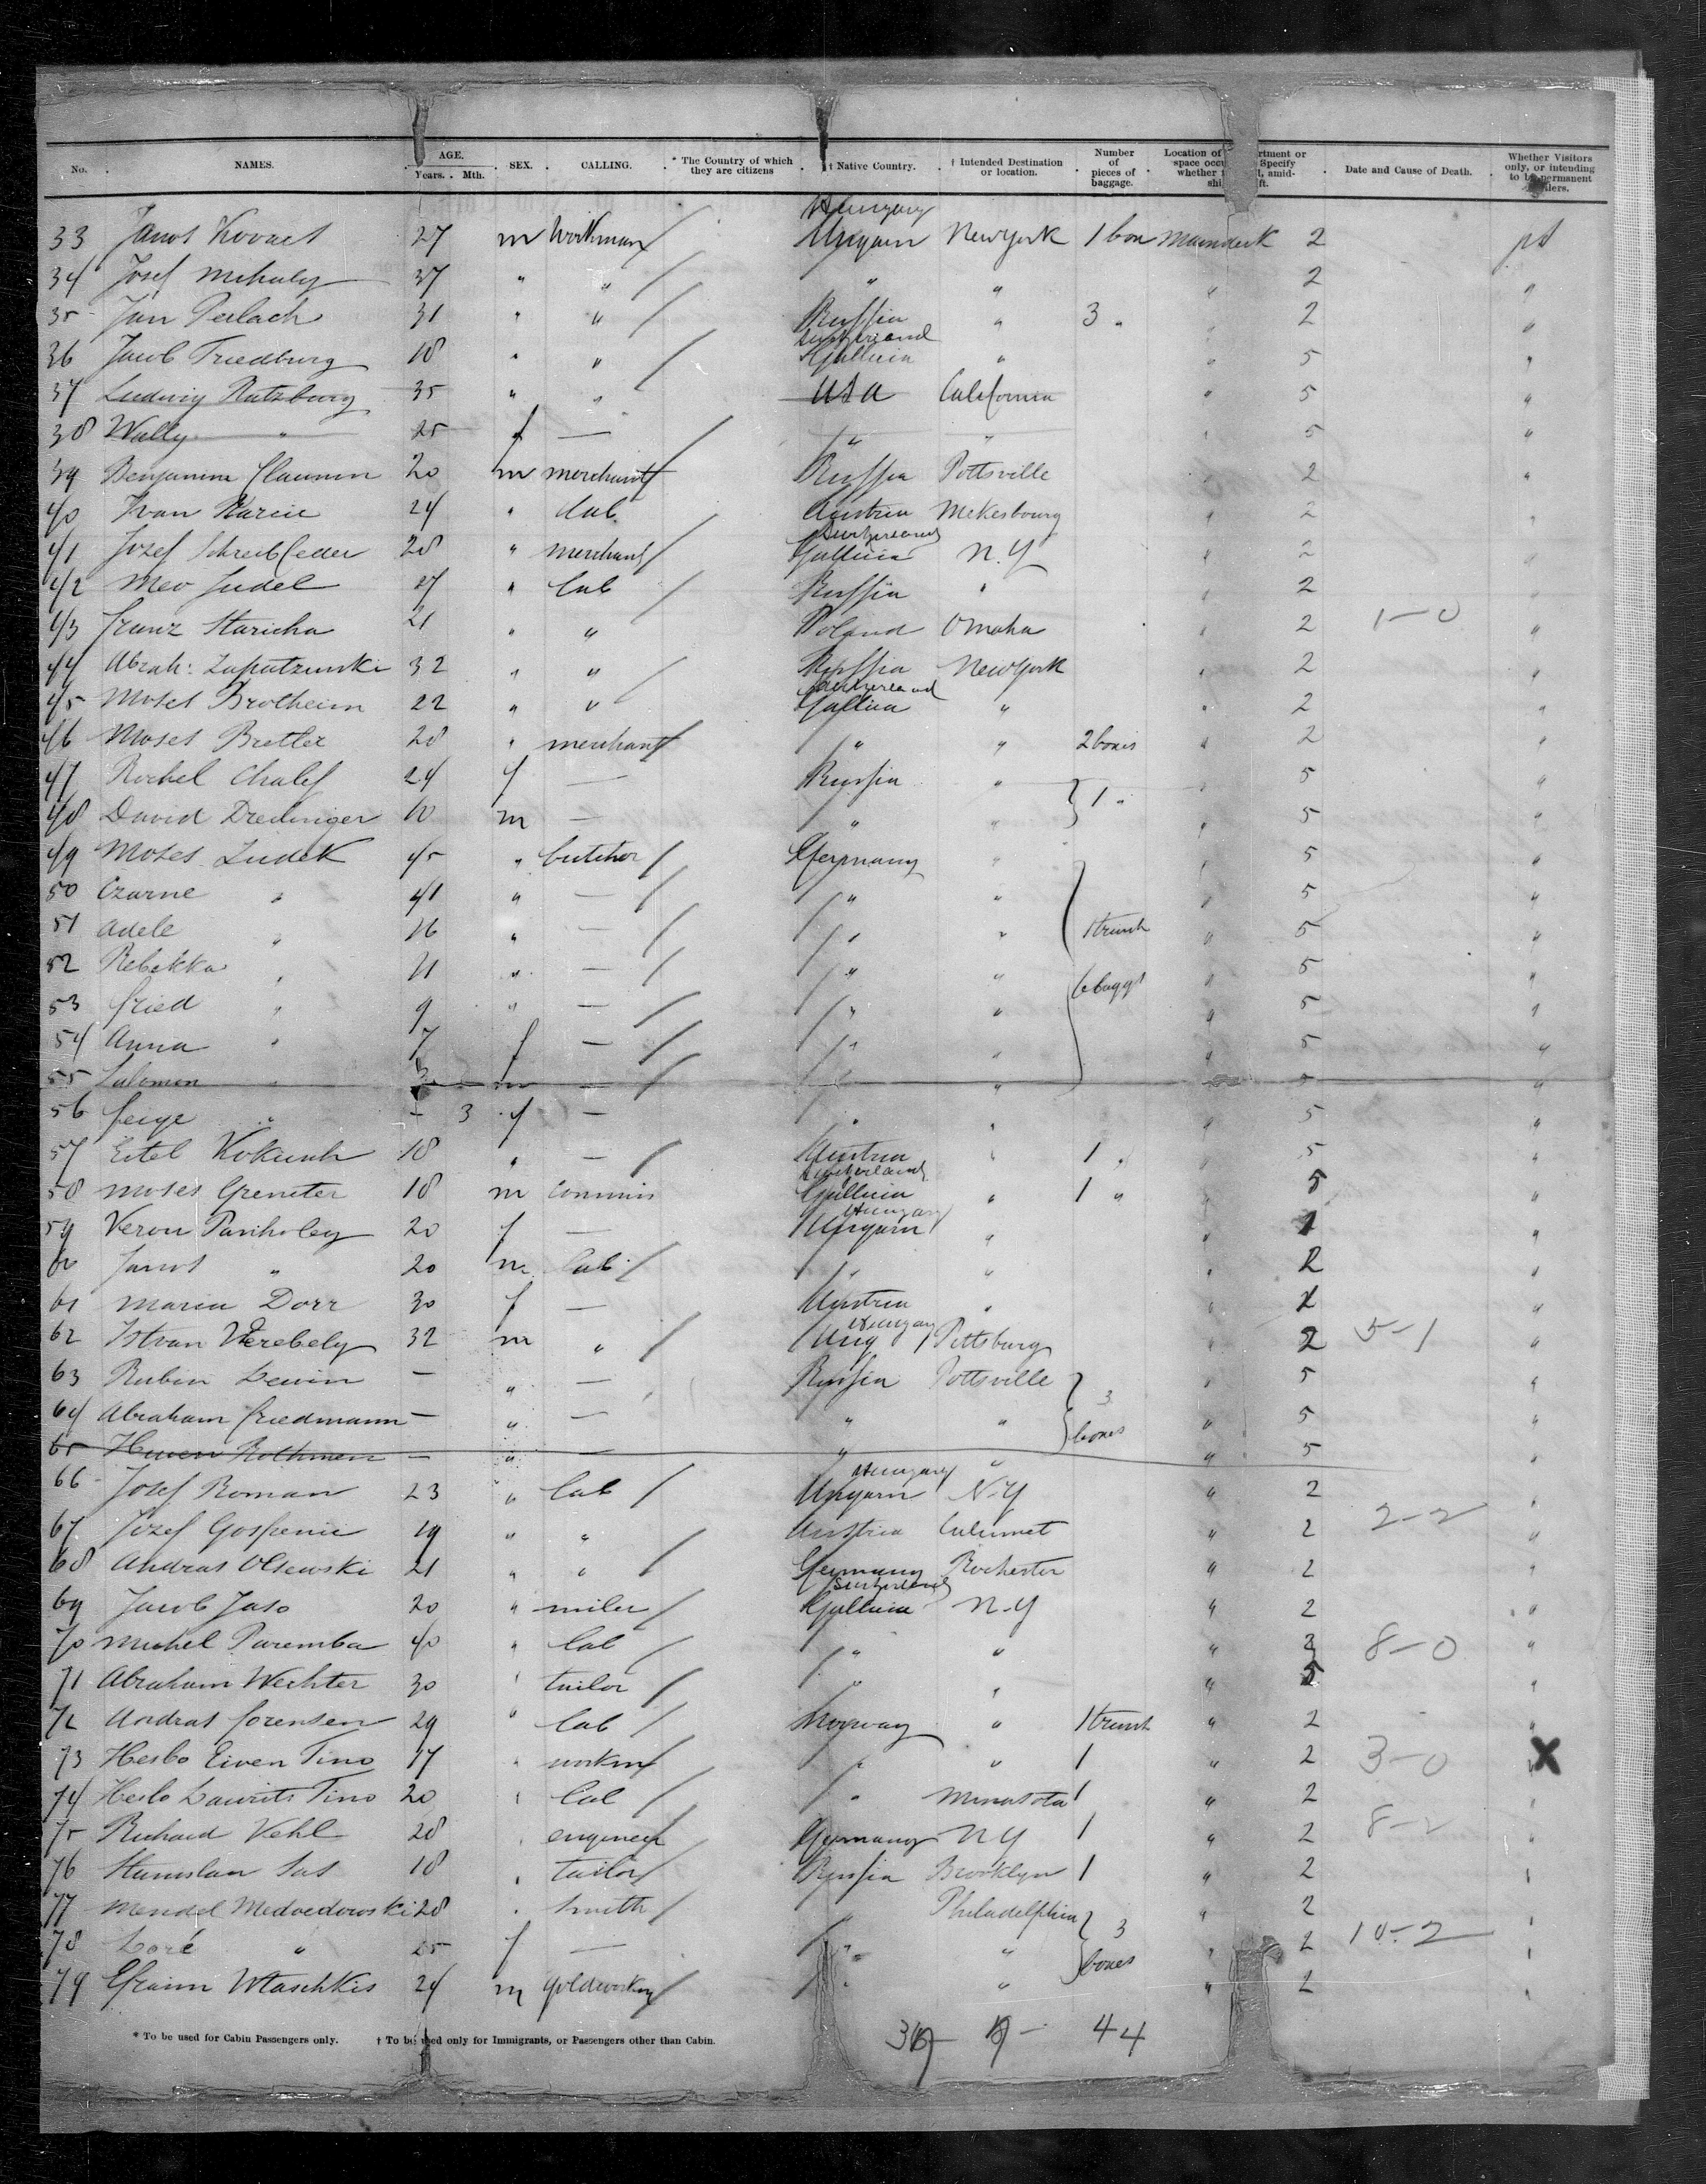 No. NAMES. AGE. Years. Mth. SEX. CALLING. * The Country of which they are citizens † Native Country. † Intended Destination or location. Number of pieces of baggage. Location of space Specify whether amid- Date and Cause of Death. Whether Visitors only, or intending to permanent
Hungary
33 Janos Kovacs 27 m Workman Ungarn New York 1 box Maindeck 2
34 Josef Mihaly 37 " " " " " 2 "
35 Jan Perlach 31 " " Russia " 3 " " 2 "
Switzerland
36 Jacob Friedburg 18 " " Gallicia " " 5 "
37 Ludwig Ratzburg 35 " " USA California " 5 "
38 Wally " 25 f — " " " 5 "
39 Benjamin 20 m merchant Russia Pottsville 2 "
40 Ivan 24 " lab Austria " 2 "
Switzerland
41 Jozef Schreibfeder 28 " merchant Gallicia N.Y " 2 "
42 Judel " lab Russia " " 2 "
43 Franz Staricha 21 " " Poland Omaha " 2 1-0 "
44 Abrah: 32 " " Russia New York " 2 "
Switzerland
45 Moses Brotheim 22 " " Gallicia " " 2 "
46 Moses Bretler 28 " merchant " " 2 boxes " 2 "
47 Rochel Chalef 24 f — Russia " 1 " " 5 "
48 David 10 m — " " " 5 "
49 Moses Ludek 45 " butcher Germany " 5 "
50 Czarne " 41 " — " " " 5 "
51 Adele " 16 " — " " 1 trunk " 5 "
52 Rebekka " 11 " — " " 5 "
53 Fried " 9 " — " " " 5 "
54 Anna " 7 f — " " " 5 "
55 Salomon " 3 m — " " 5 "
56 Feige " — 3 f — " " " 5 "
57 Estel 18 " — Austria " 1 " " 5 "
Switzerland
58 Moses 18 m commis Gallicia " 1 " " 5 "
Hungary
59 Veron 20 f — Ungarn " " "
60 Janos " 20 m lab " " " 2 "
61 Maria Dorr 30 f — Austria " " "
Hungary
62 Istvan Werebely 32 m " Ung Pittsburg " 2 5-1 "
63 Rubin Lewin — " — Russia Pottsville 3 " 5 "
64 Abraham Friedmann — " — " " boxes " 5 "
65 Rothmen — " — " " " 5 "
Hungary
66 Josef Roman 23 " lab Ungarn N.Y " 2 "
67 Jozef Gospenic 19 " " Austria Calumet " 2 2-2 "
68 Andras Olsewski 21 " " Germany Rochester " 2 "
Switzerland
69 Jacob Jaso 20 " miler Gallicia N.Y " 2 "
70 Michel Paremba 40 " lab " " " 8-0 "
71 Abraham Wechter 30 " tailor " " " 5 "
72 Andras Sorensen 29 " lab Norway " 1 trunk " 2 "
73 Hesbo Eiven Tino 17 " workm " " 1 " 2 3-0 X
74 Hesbo Laurits Tino 20 " lab " Minasota 1 " 2 "
75 Richard Vehl 28 " engineer Germany N Y 1 " 2 8-2 "
76 Stanislau Sas 18 " tailor Russia Brooklyn 1 " 2 "
77 Mendel Medvedowski 28 " smith Philadelphia 3 " 2
78 " 25 f — " " boxes " 2 10-2 "
79 Efraim Wlaschkis 24 m goldworking " " " 2 "
* To be used for Cabin Passengers only. † To be used only for Immigrants, or Passengers other than Cabin.
44